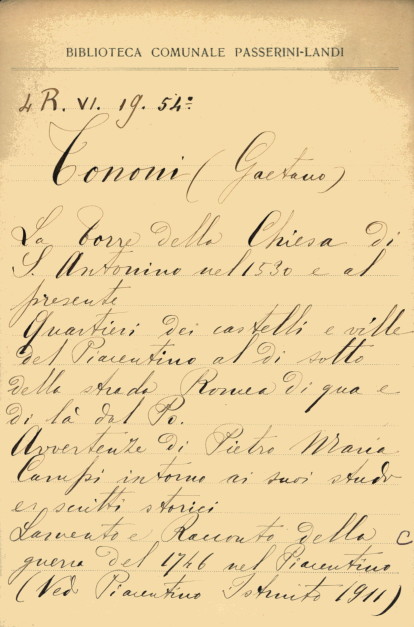 BIBLIOTECA COMUNALE PASSERINI-LANDI
4 R. VI. 19. 54º
Tononi (Gaetano)
La torre della Chiesa di
S. Antonino nel 1530 e al
presente
Quartieri dei castelli e ville
del Piacentino al di sotto
della strada Romea di qua e
di là dal Po.
Avvertenze di Pietro Maria
Campi intorno ai suoi studi
e scritti storici
Lamento e Racconto della
guerra del 1746 nel Piacentino
(Ved Piacentino Istruito 1911)